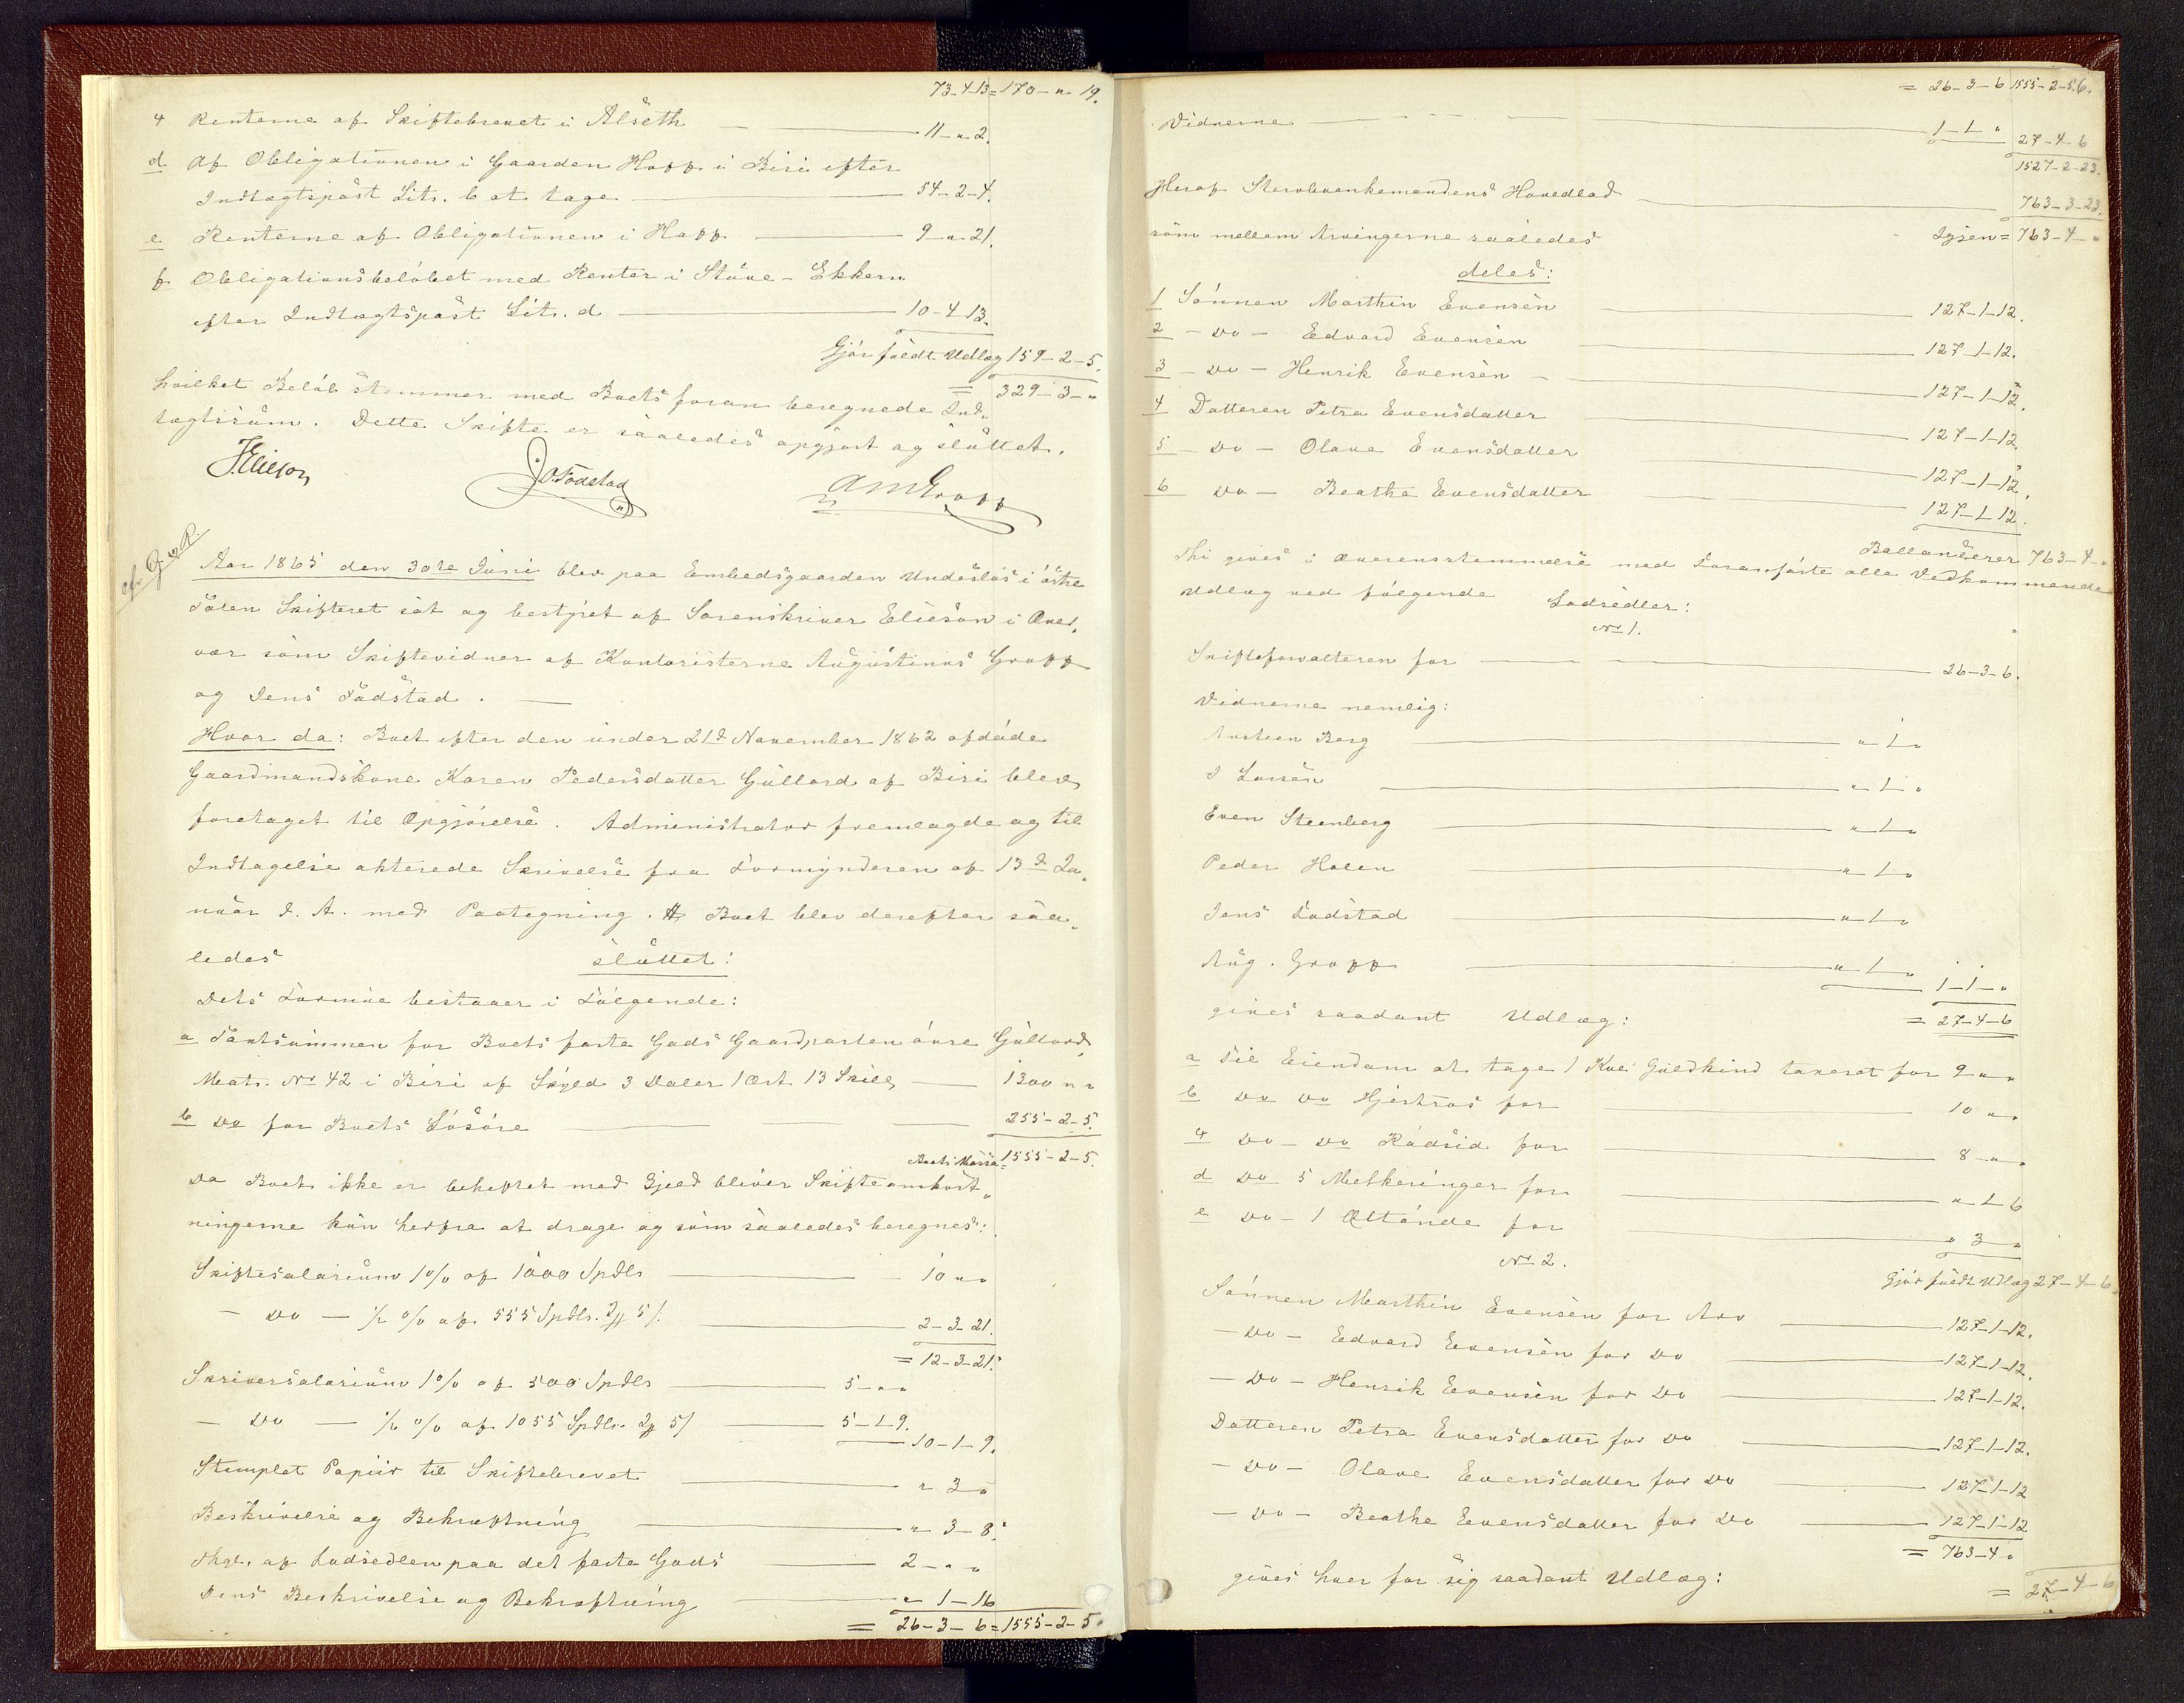 73-4-13 = 170-"-19.
4 Renterne af Skiftebrevet i Alseth 11-"-2.
d Af Obligationen i Gaarden Hopp i Biri efter
Indtægtspost Litr. b at tage 54-2-4.
e Renterne af Obligationen i Hopp 9-"-21.
f Obligationsbeløbet med Renter i Støve-Ekkern
efter Indtægtspost Litr. d 10-4-13.
Gjør fuldt Udlæg 159-2-5.
= 329-3-"
hvilket Beløb stemmer med Boets foran beregnede Ind-
tægtssum. Dette Skifte er saaledes opgjort og sluttet.
J. Elieson J. O. Fodstad Aug Gropp
Aar 1865 den 30te Juni blev paa Embedsgaarden Undeslos i østre
Toten Skifteret sat og bestyret af Sorenskriver Elieson i Over-
vær som Skiftevidner af Kontoristerne Augustinus Gropp
og Jens Fodstad.
Hvor da: Boet efter den under 21d November 1862 afdøde
Gaardmandskone Karen Pedersdatter Gullord af Biri blev
foretaget til Opgjørelse. Administrator fremlagde og til
Indtagelse akterede Skrivelse fra Formynderen af 13d Ja-
nuar d. A. med Paategning. Boet blev derefter saa-
ledes sluttet:
Dets Formue bestaaer i Følgende:
a Taxtsummen for Boets faste Gods Gaardparten øvre Gullord,
Matr. No 42 i Biri af Skyld 3 Daler 1 Ort 13 Skill, 1300 " "
b Do for Boets Løsøre 255-2-5.
Boets Massa = 1555-2-5.
Da Boet ikke er beheftet med Gjeld bliver Skifteomkost-
ningerne kun herfra at drage og som saaledes beregnes:
Skiftesalarium 1% af 1000 Spdlr 10 " "
- Do - ½ % af 555 Spdlr. 2 ₰ 5 /. 2-3-21.
= 12-3-21.
Skriversalarium 1% af 500 Spdlr 5-" "
- Do - ½ % af 1055 Spdlr. 2 ₰ 5/ 5-1-9.
10-1-9.
Stemplet Papiir til Skiftebrevet " 3 "
Beskrivelse og Bekræftning " 3-8.
Thgl. af Lodsedlen paa det faste Gods 2-" "
Dens Beskrivelse og Bekræftning " 1-16
= 26-3-6 = 1555-2-5.
= 26-3-6 1555-2-5.
Vidnerne 1-1-" 27-4-6
1527-2-23.
Heraf Stervboenkemandens Hovedlod 763-3-23.
som mellem Arvingerne saaledes Igjen = 763-4-"
deles:
1 Sønnen Marthin Evensen 127-1-12.
2 - Do - Edvard Evensen 127-1-12.
3 - Do - Henrik Evensen - 127-1-12.
4 Datteren Petra Evensdatter 127-1-12.
5 - Do - Olave Evensdatter 127-1-12.
6 Do - Beathe Evensdatter 127-1-12.
Ballanserer 763-4-"
Thi gives i Overensstemmelse med Foranførte alle Vedkommende
Udlæg ved følgende Lodsedler:
No 1.
Skifteforvalteren for 26-3-6.
Vidnerne nemlig:
Berg " 1 "
Larsen " 1 "
Even Steenberg " 1 "
Peder Holen " 1 "
Jens Fodstad " 1 "
Aug. Gropp " 1 " 1-1-"
= 27-4-6
gives saadant Udlæg:
a Til Eiendom at tage 1 Koe Guldkind taxeret for 9 " "
b Do Do Hjertros for 10 " "
c Do - Do Rødsid for 8 " "
d Do 5 Melkeringer for " 1 6
e Do - 1 Øltønde for " 3 "
Gjør fuldt Udlæg 27-4-6.
No 2.
Sønnen Marthin Evensen for Arv 127-1-12.
- Do - Edvard Evensen for Do 127-1-12.
- Do - Henrik Evensen for Do 127-1-12.
Datteren Petra Evensdatter for Do 127-1-12.
- Do - Olave Evensdatter for Do 127-1-12
- Do - Beathe Evensdatter for Do 127-1-12
= 763-4-"
gives hver for sig saadant Udlæg:
= 27-4-6